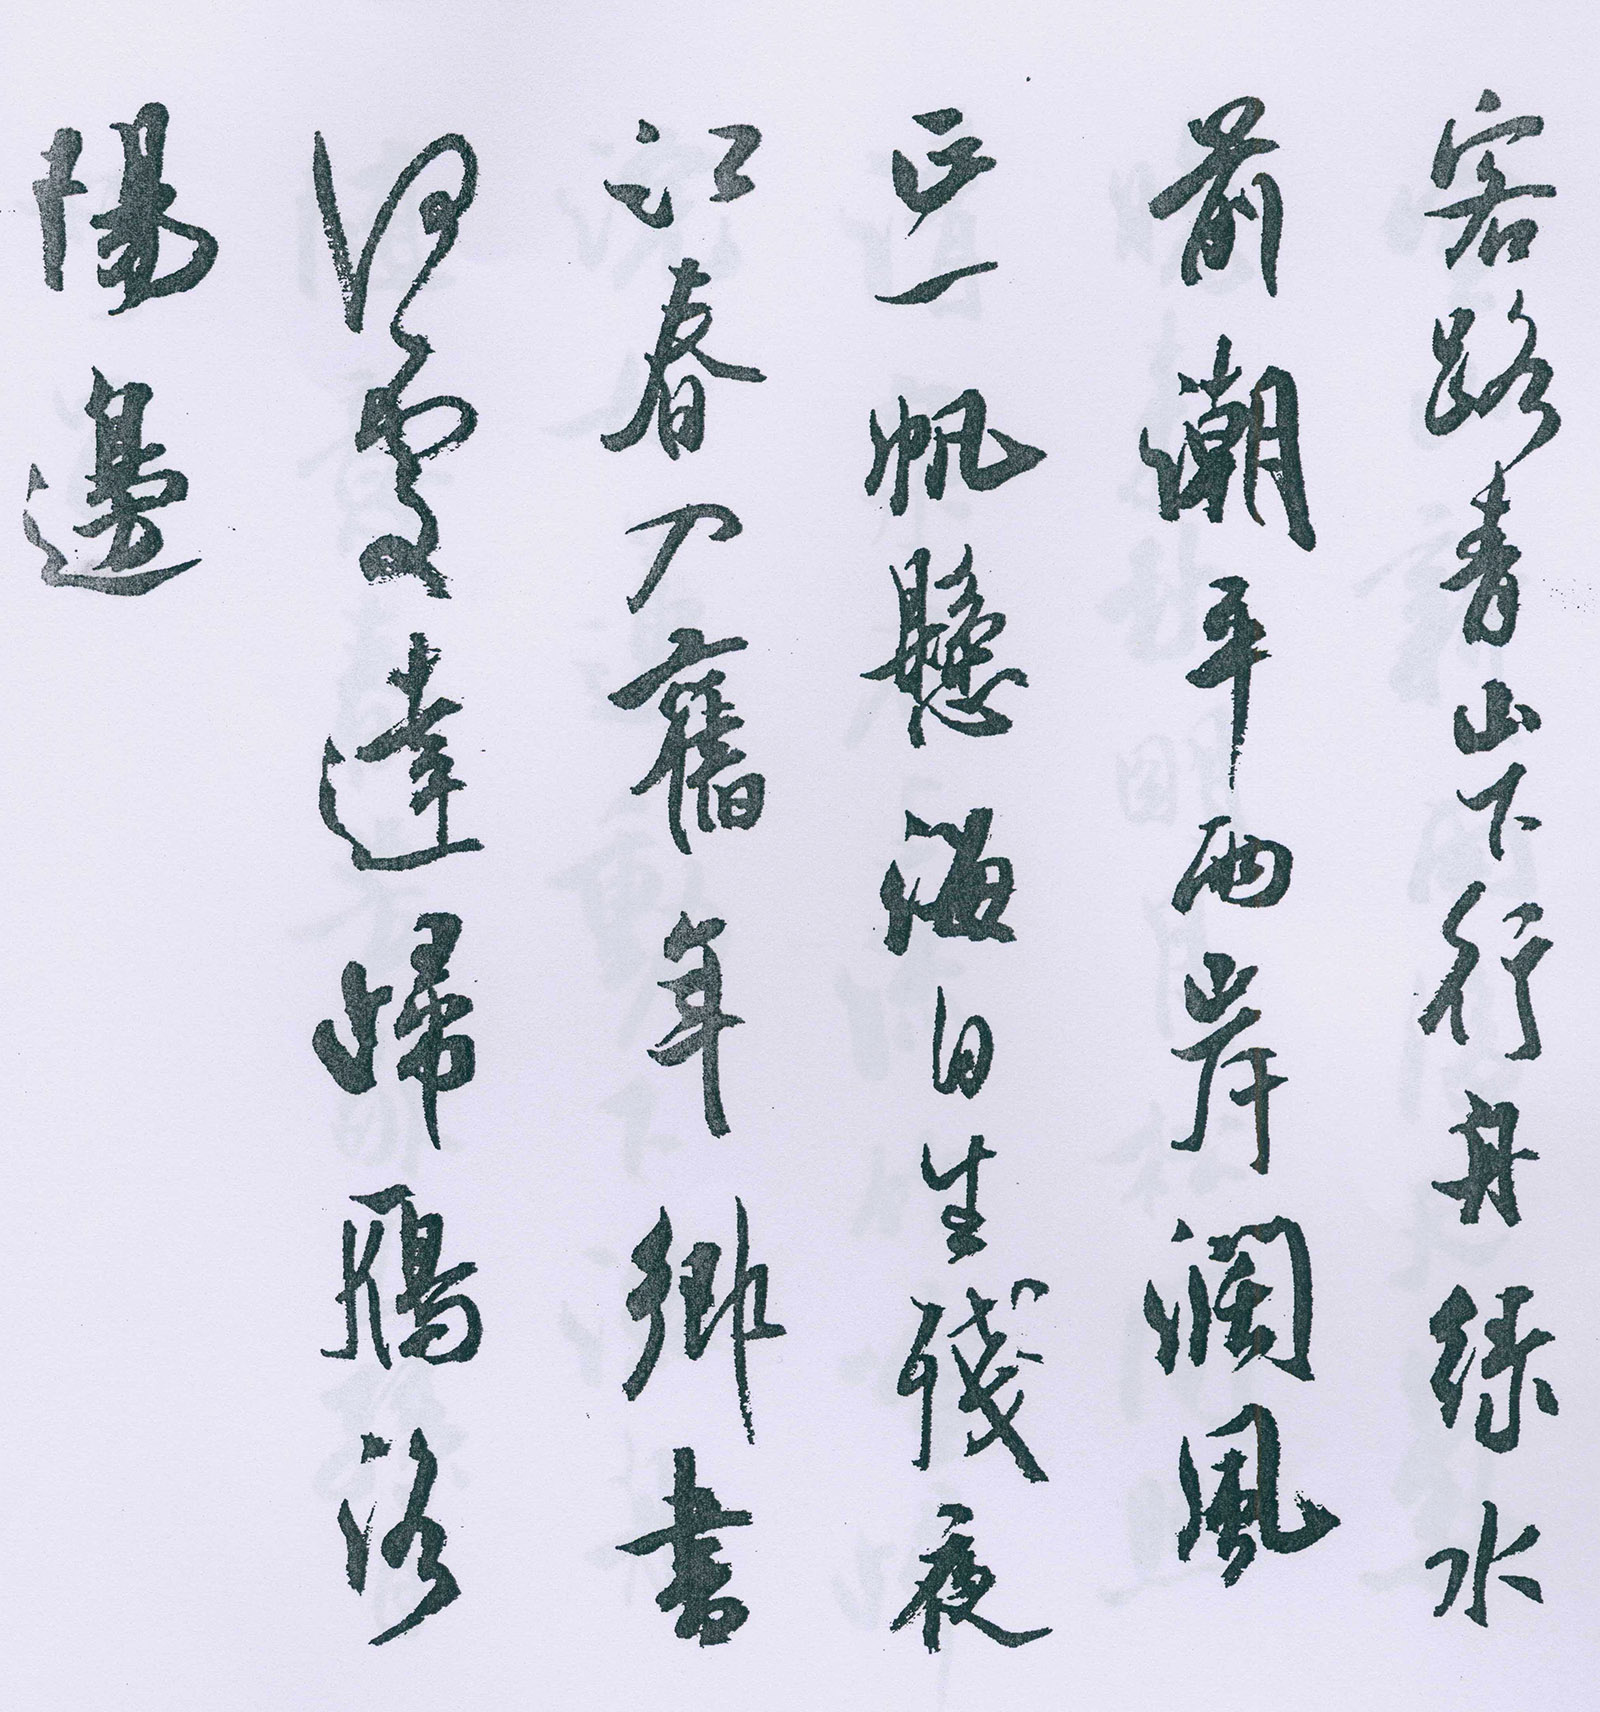 客路青山下行舟綠水
前潮平両岸濶風
正一帆懸海日生殘夜
江春入舊年鄉書
何處達歸鴈洛
陽邊